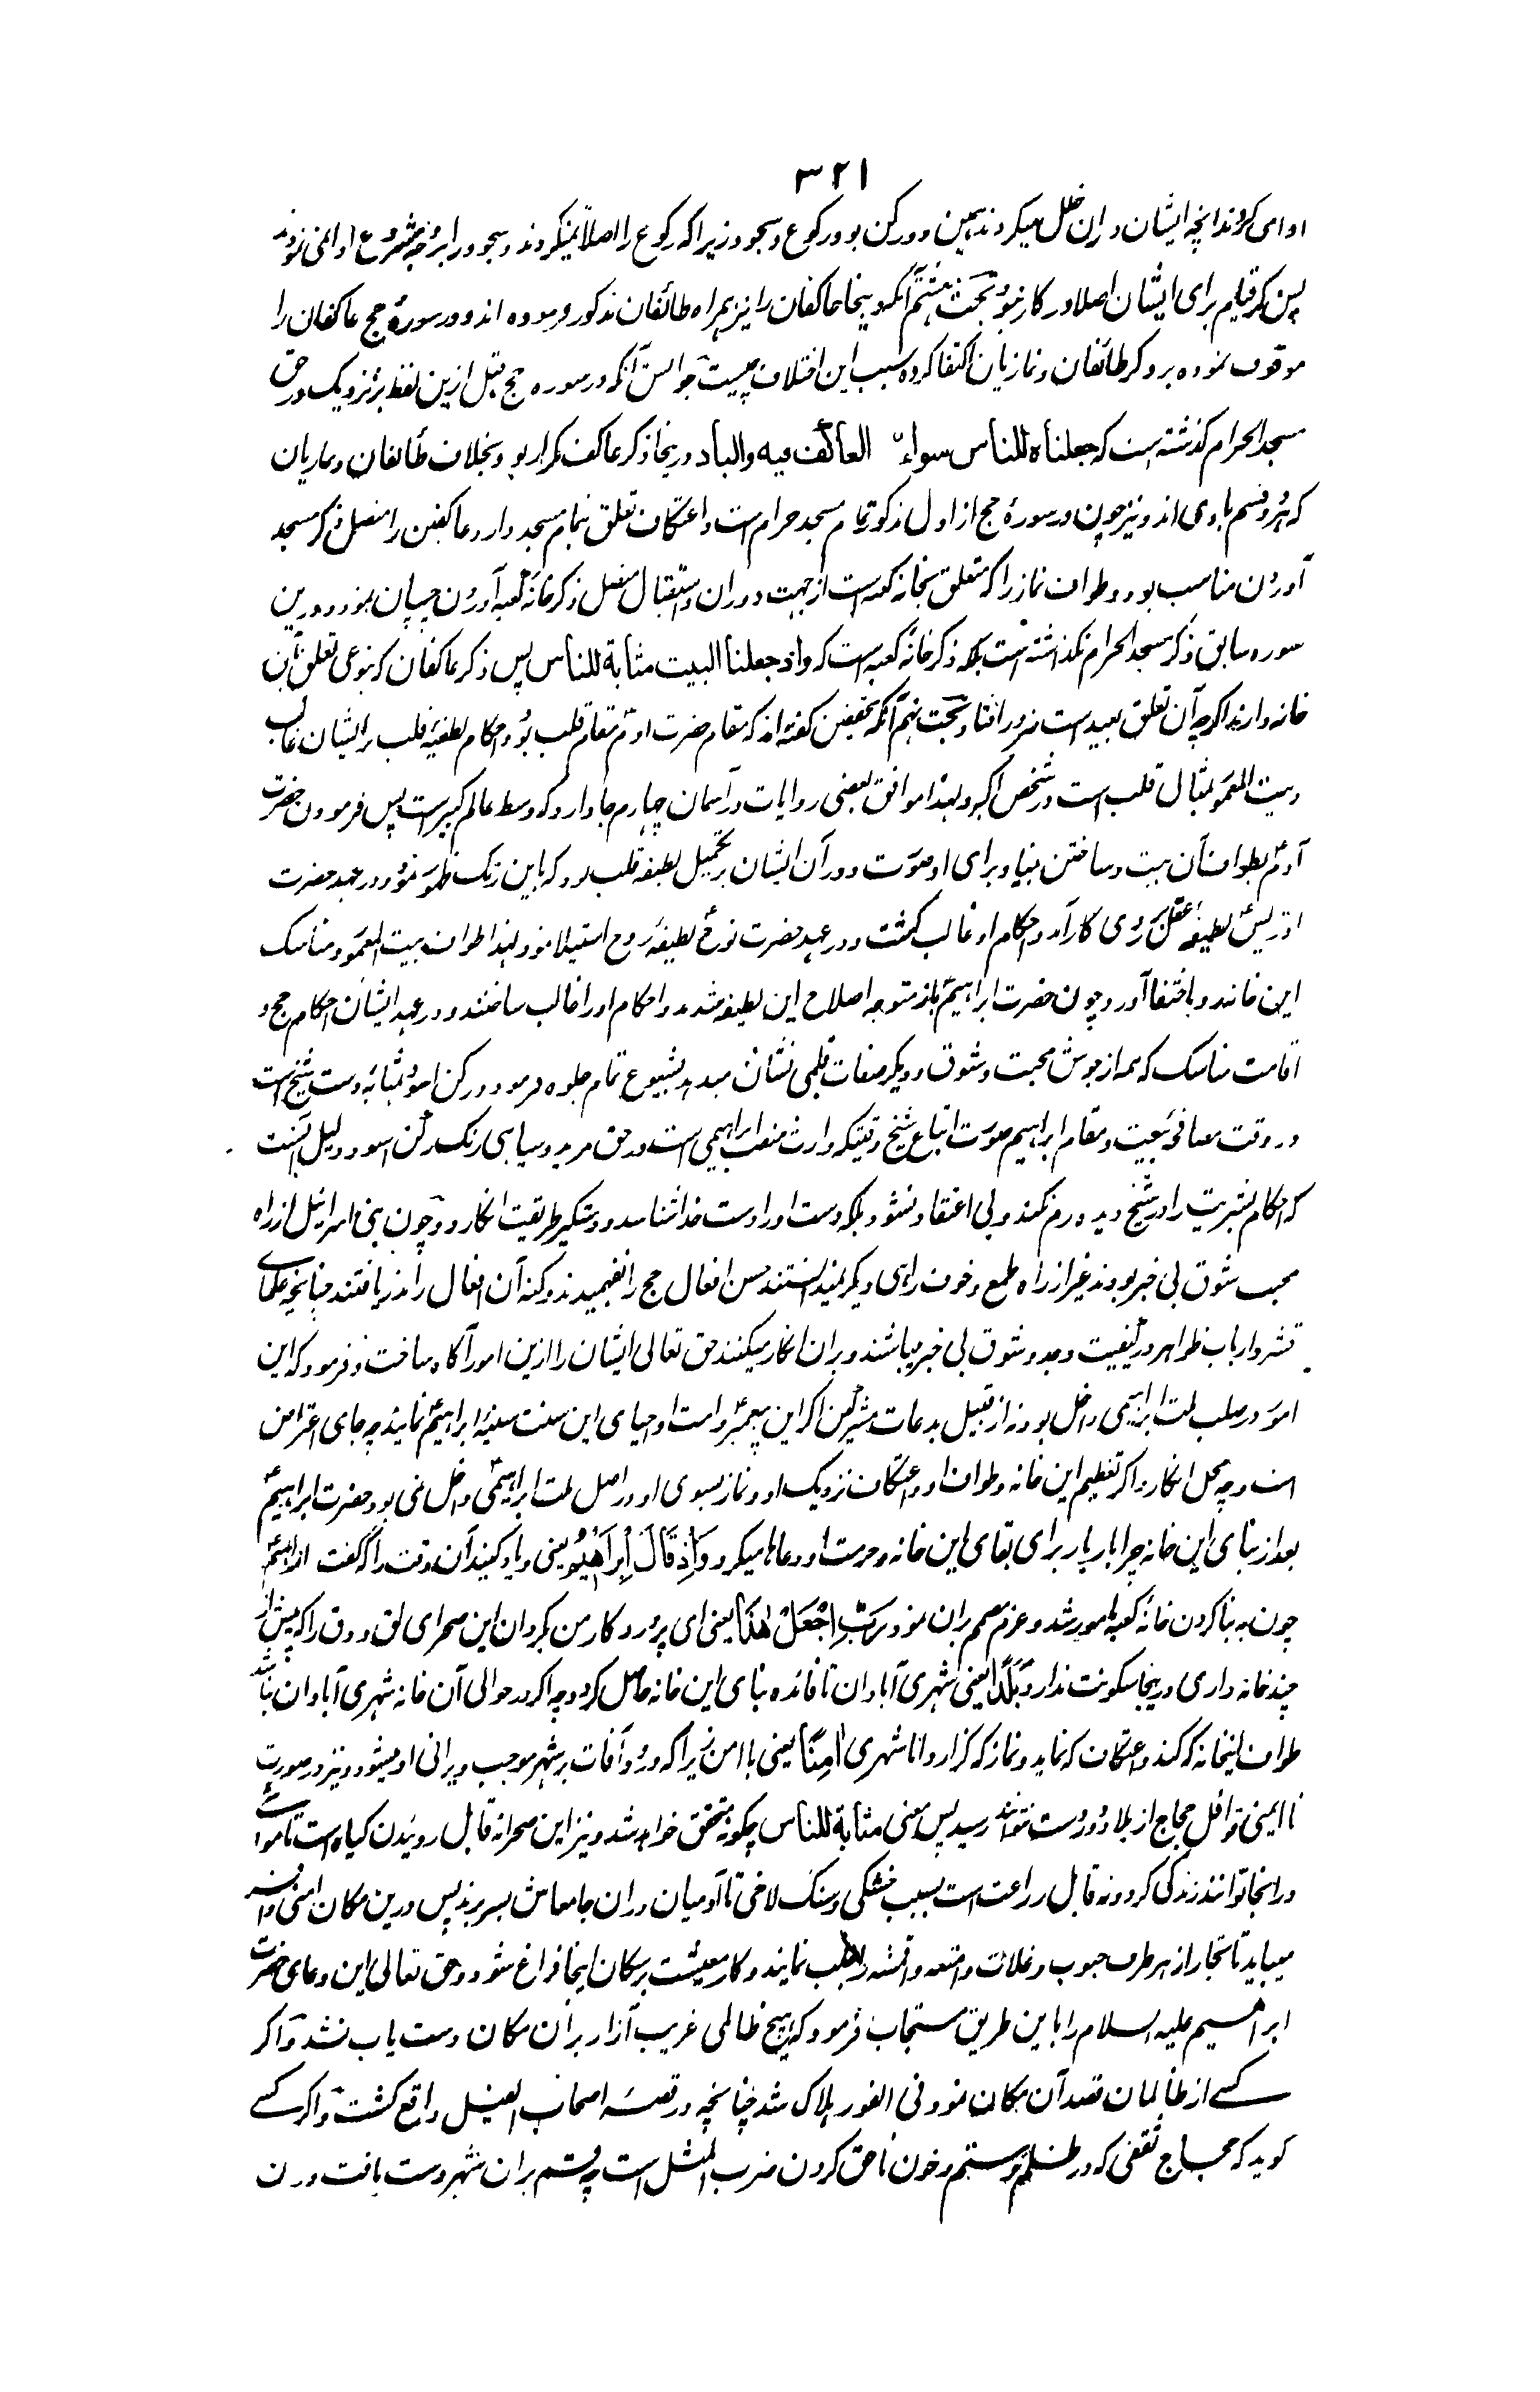 ۳۲۱
ادا می کردند انچه ایشان دران خلل میکردند همین دو رکن بود رکوع و سجود زیرا که رکوع را اصلاً نمیکردند و سجود را بر وجه مشروع ادا نمی نمودند
پس ذکر قیام برای ایشان اصلا در کار نبود بحث هشتم آنکه در ینجا عاکفان را نیز همراه طائفان مذکور فرموده اند و در سورهٔ حج عاکفان را
موقوف نموده بر ذکر طائفان و نمازیان اکتفا کرده سبب این اختلاف چیست جوابش آنکه در سوره حج قبل ازین لفظ بر نزدیک در حق
مسجد الحرام گذشته است که جعلناه للناس سواءً العاکف فیه والباد در ینجا ذکر عاکف مکرار بود بخلاف طائفان و نمازیان
که هر دو قسم بادی اند و نیز چون در سورهٔ حج از اول مذکور تمام مسجد حرام است و اعتکاف تعلق بتمام مسجد دارد عاکفین را متصل ذکر مسجد
آوردن مناسب بود و طواف نماز را که متعلق بخانه کعبه است از جهت دوران و استقبال متصل ذکر خانهٔ کعبه آوردن چسپان نمود و درین
سوره سابق ذکر مسجد الحرام نگذشته است بلکه ذکر خانهٔ کعبه است که واذ جعلنا البیت مثابة للناس پس ذکر عاکفان که بنوعی تعلق بآن
خانه دارند اگرچه آن تعلق بعید است ضرور افتاد بحث نهم آنکه محققین گفته اند که مقام حضرت آدمؑ مقام قلب بود و احکام لطیفهٔ قلب بر ایشان غالب
و بیت المعمور بمثال قلب است در شخص اکبر و لهذا موافق بعضی روایات در آسمان چهارم جا دارد که وسط عالم کبیر است پس فرمودن حضرت
آدمؑ بطواف آن بیت و ساختن بنیاد برای او صورت دوران ایشان بر تکمیل لطیفه قلب بود که باین رنگ ظهور نمود و در عهد حضرت
ادریسؑ لطیفهٔ عقل بر روی کار آمد و احکام او غالب گشت و در عهد حضرت نوحؑ لطیفهٔ روح استیلا نمود لهذا طواف بیت المعمور و مناسک
این خانه رو باختفا آورد و چون حضرت ابراهیمؑ باز متوجه اصلاح این لطیفه شدند و احکام او را غالب ساختند و در عهد ایشان احکام حج و
اقامت مناسک که همه از جوش محبت و شوق و دیگر صفات قلبی نشان میدهد بشیوع تمام جلوه فرمود و رکن اسود بمثابهٔ دست شیخ است
در وقت مصافحهٔ بیعت و مقام ابراهیم صورت اتباع شیخ وقتیکه وارث منصب ابراهیمی است در حق مرید و سیاهی رنگ رکن اسود دلیل آنست
که احکام بشریت را در شیخ دیده رم نکند و بی اعتقاد نشود بلکه دست او را دست خدا شناسد و دستگیر طریقت انگارد و چون بنی اسرائیل از راه
محبت شوق بی خبر بودند غیر از راه طمع و خوف راهی دیگر نمیدانستند حسن افعال حج را نفهمیدند و کنه آن افعال را نمی یافتند چنانچه علمای
قشر و ارباب ظواهر در کیفیت وجد و شوق بی خبر میباشند و بران انکار میکنند حق تعالی ایشان را ازین امور آگاه ساخت و فرمود که این
امور در صلب ملت ابراهیمی داخل بود نه از قبیل بدعات مشرکین اگر این پیغمبرؐ و امت او احیای این سنت سنیهٔ ابراهیمؑ نمایند چه جای اعتراض
است و چه محل انکار و اگر تعظیم این خانه و طواف او و اعتکاف نزدیک او و نماز بسوی او در اصل ملت ابراهیمی داخل نمی بود حضرت ابراهیمؑ
بعد از بنای این خانه چرا بار بار برای بقای این خانه و حرمت او دعاها میکرد وَاِذْ قَالَ اِبْرَاهِیْمُ یعنی و یاد کنید آن وقت را که گفت ابراهیمؑ
چون به بنا کردن خانهٔ کعبه مامور شد و عزم مصمم بران نمود رَبِّ اجْعَلْ هٰذَا یعنی ای پروردگار من بگردان این صحرای لق و دق را که بیش از
چند خانه داری در ینجا سکونت ندارد بَلَدًا یعنی شهری آبادان تا فائده بنای این خانه حاصل گردد چه اگر در حوالی آن خانه شهری آبادان نباشد
طواف اینخانه که کند و اعتکاف که نماید و نماز که گزارد اما شهری اٰمِنًا یعنی با امن زیرا که ورود آفات بر شهر موجب ویرانی او میشود و نیز در صورت
نا ایمنی قوافل حجاج از بلاد دور دست نتوانند رسید پس معنی مثابة للناس چگونه متحقق خواهد شد و نیز این صحرا نه قابل روئیدن گیاه است تا مواشے
در انجا توانند زندگی کرد و نه قابل زراعت است بسبب خشکی و سنگ لاخی تا آدمیان دران جا معاش بسر برند پس درین مکان امنی وافر
میباید تا تجار از هر طرف حبوب و غلات و امتعه و اقمشه را جلب نمایند و کار معیشت بر سکان اینجا فراغ شود و حق تعالی این دعای حضرت
ابراهیم علیه السلام را باین طریق مستجاب فرمود که هیچ ظالمی غریب آزار بران مکان دست یاب نشد و اگر
کسے از ظالمان قصد آن مکان نمود فی الفور هلاک شد چنانچه در قصهٔ اصحاب الفیل واقع گشت و اگر کسے
گوید که حجاج ثقفی که در ظلم و ستم و خون ناحق کردن ضرب المثل است چه قسم بران شهر دست یافت و در ن